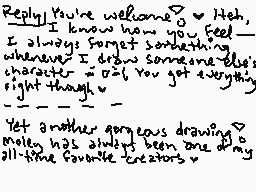 Reply] You're welcome ♥ Heh,
I know how you feel —
I always forget something
whenever I draw someone else's
character =0=( You got everything
right though ♥
— — — — —
Yet another gorgeous drawing ♥
Moley has always been one of my
all-time favorite creators ♥